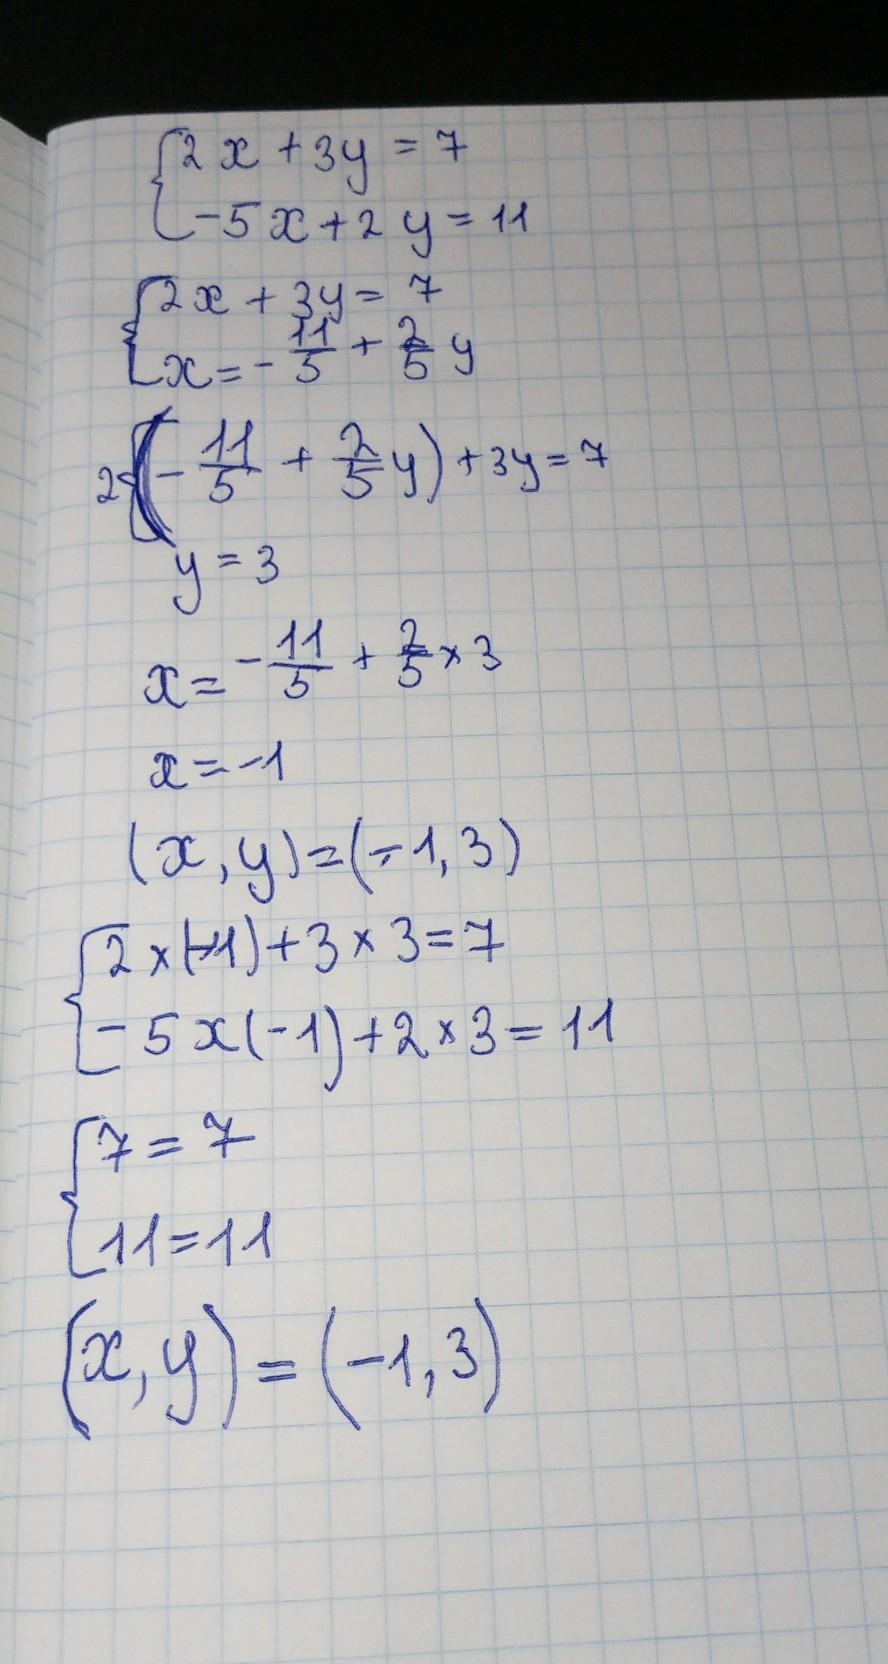 {2x + 3y = 7
-5x + 2y = 11
{2x + 3y = 7
x = -11/5 + 2/5 y
2(-11/5 + 2/5 y) + 3y = 7
y = 3
x = -11/5 + 2/5 × 3
x = -1
(x, y) = (-1, 3)
{2 × (-1) + 3 × 3 = 7
-5 x (-1) + 2 × 3 = 11
{7 = 7
11 = 11
(x, y) = (-1, 3)